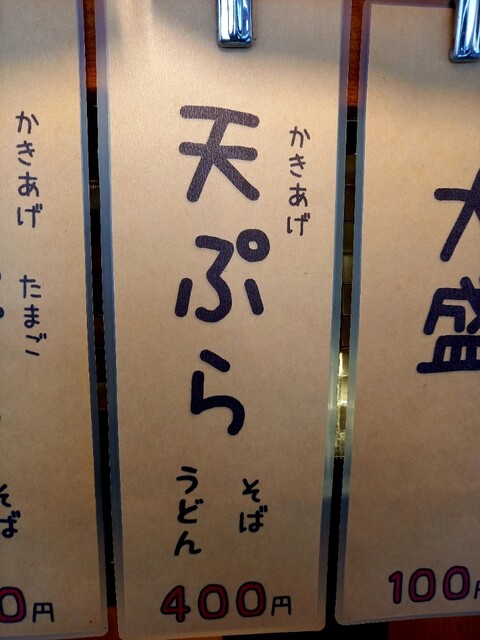 大盛
100円
かきあげ
天ぷら
そば
うどん
400円
かきあげ たまご
そば
0円